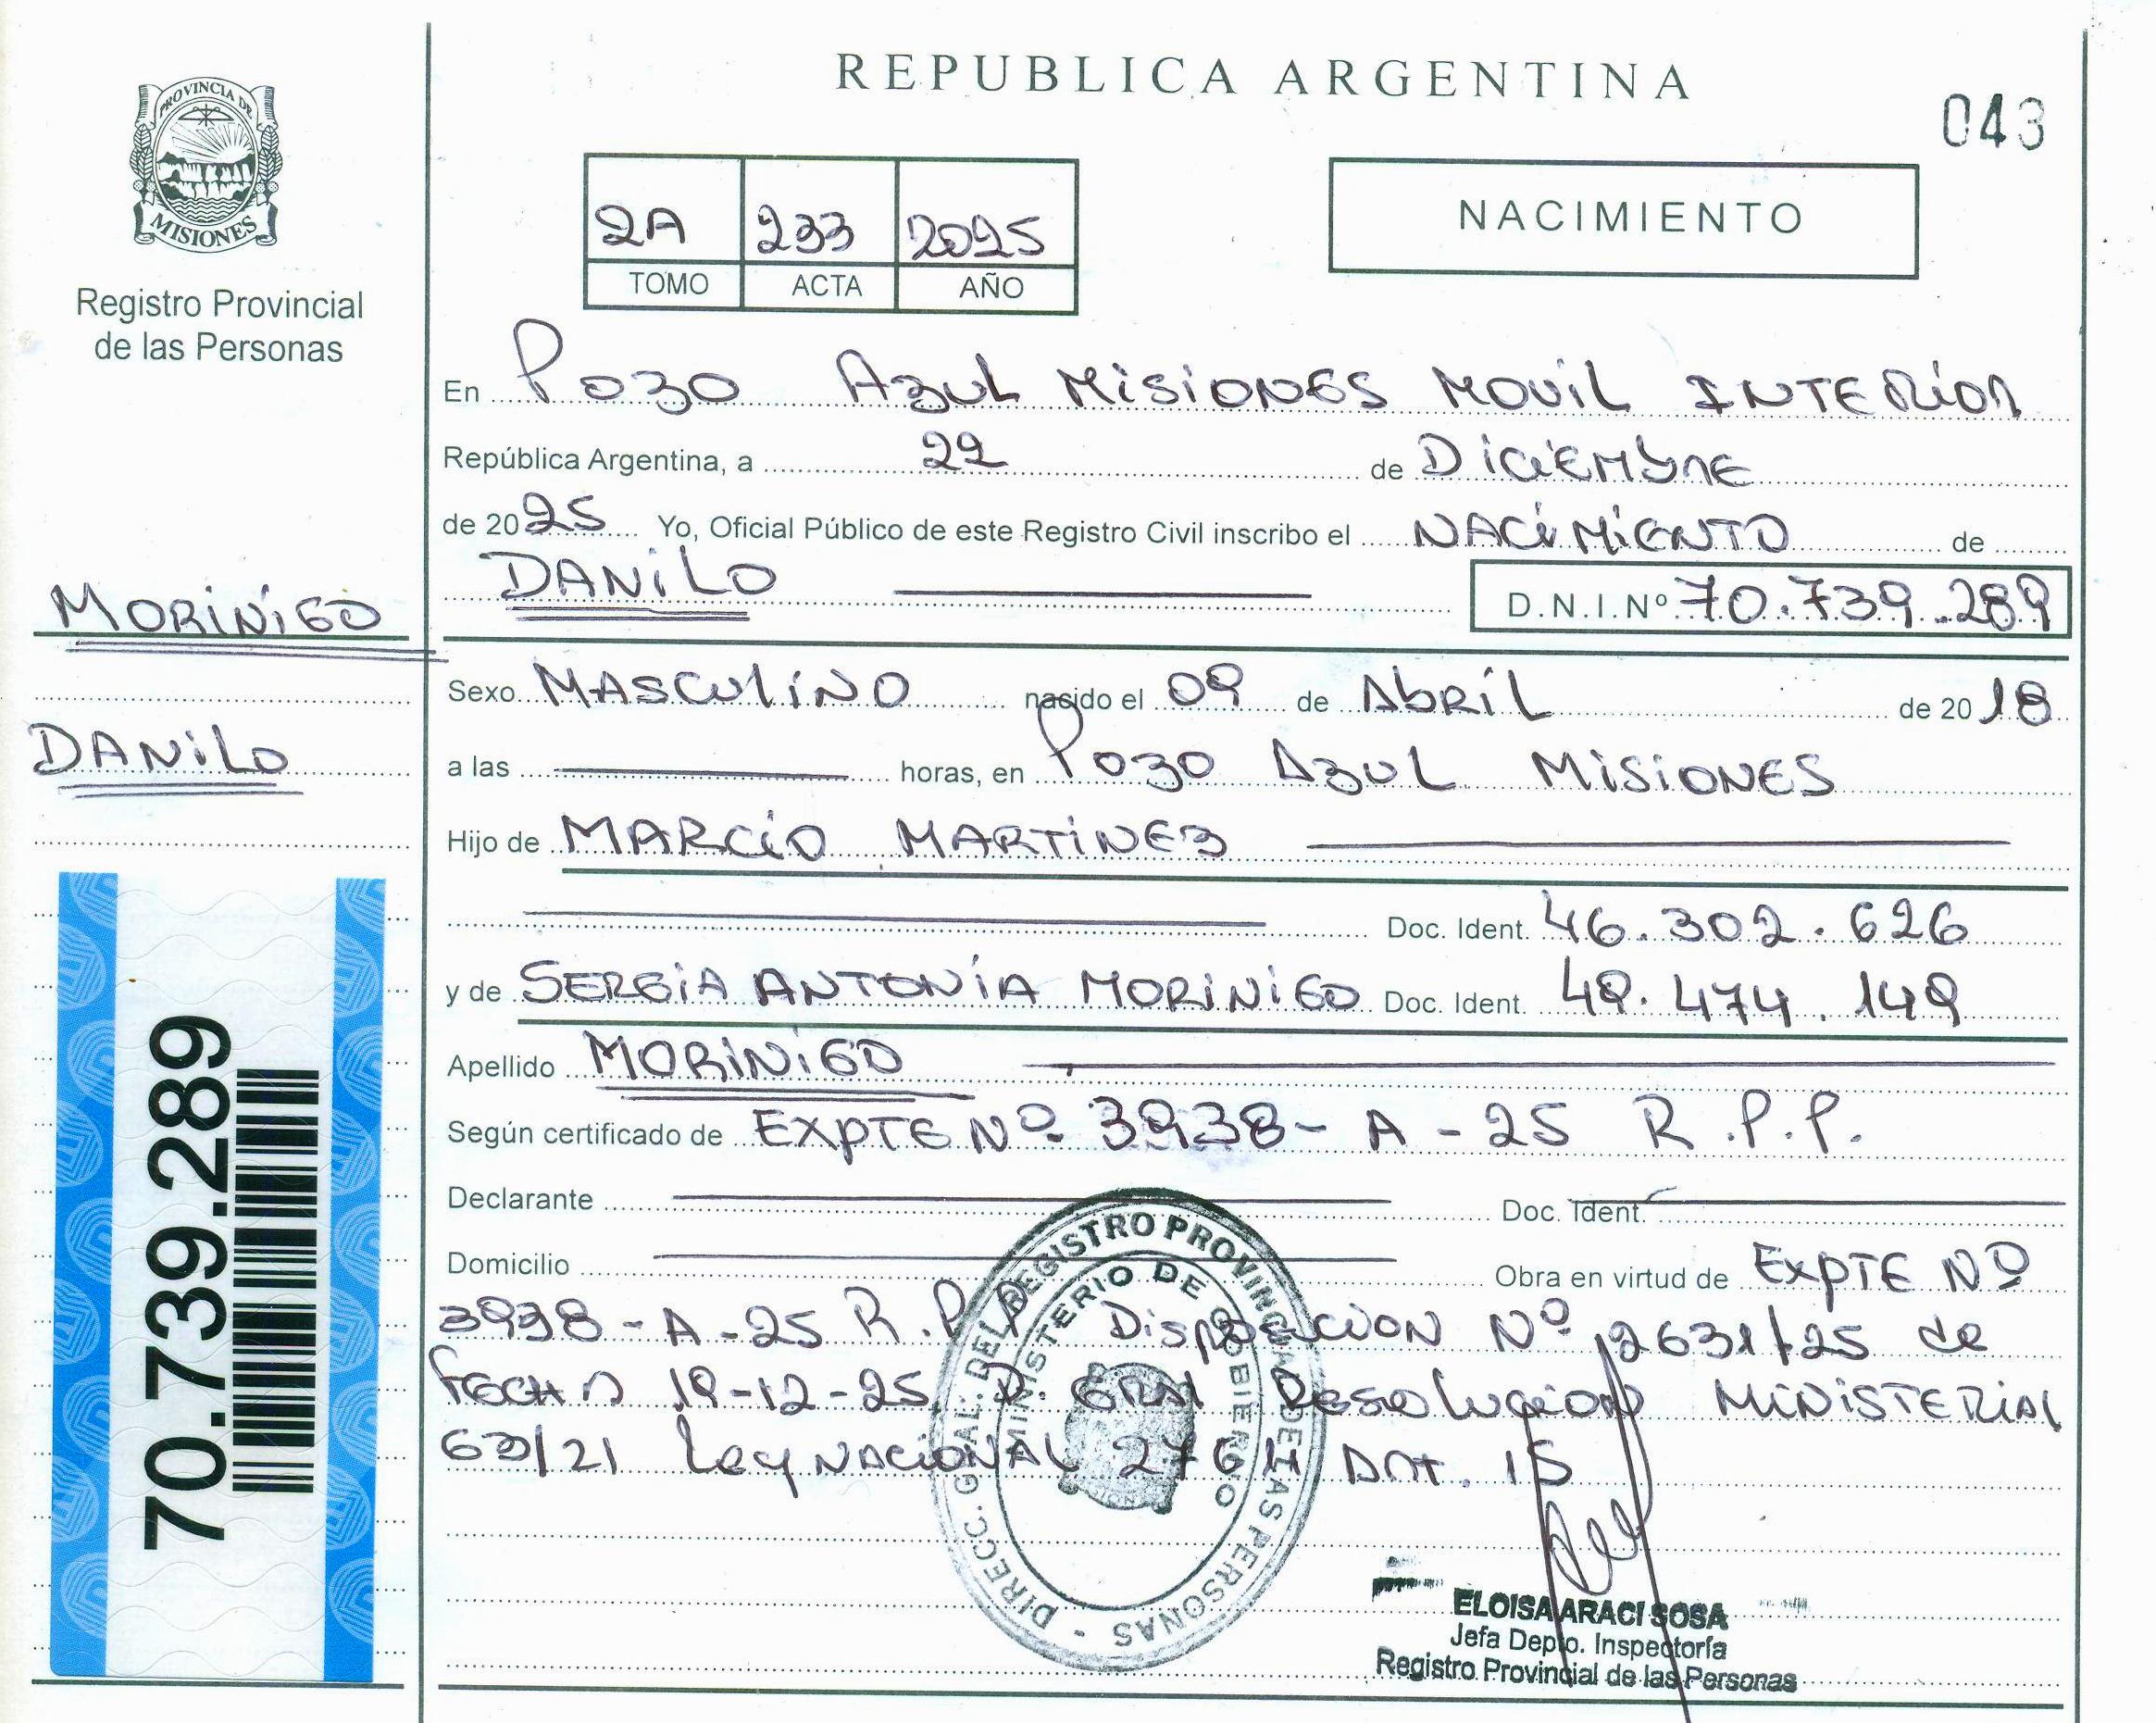 REPUBLICA ARGENTINA
043
PROVINCIA DE
MISIONES
Registro Provincial
de las Personas
2A 233 2025
TOMO ACTA AÑO
NACIMIENTO
En Pozo Azul Misiones Movil Interior
República Argentina, a 22 de Diciembre
de 2025 Yo, Oficial Público de este Registro Civil inscribo el NACIMIENTO de
DANILO D.N.I.Nº 70.739.289
MORINIGO
DANILO
Sexo MASCULINO nacido el 09 de Abril de 2018
a las horas, en Pozo Azul Misiones
Hijo de MARCIO MARTINEZ
Doc. Ident. 46.302.626
y de SERGIA ANTONIA MORINIGO Doc. Ident. 49.474.149
Apellido MORINIGO
Según certificado de EXPTE Nº 3938-A-25 R.P.P.
Declarante Doc. Ident.
Domicilio Obra en virtud de EXPTE Nº
3938-A-25 R.P.P. Disposicion Nº 2631/25 de
fecha 19-12-25 D. GRAL Resolucion MINISTERIAL
/21 Ley NACIONAL Art. 15
70.739.289
DIRECC. GRAL. DEL REGISTRO PROVINCIAL DE LAS PERSONAS -
MINISTERIO DE GOBIERNO
ELOISA ARACI SOSA
Jefa Depto. Inspectoría
Registro Provincial de las Personas